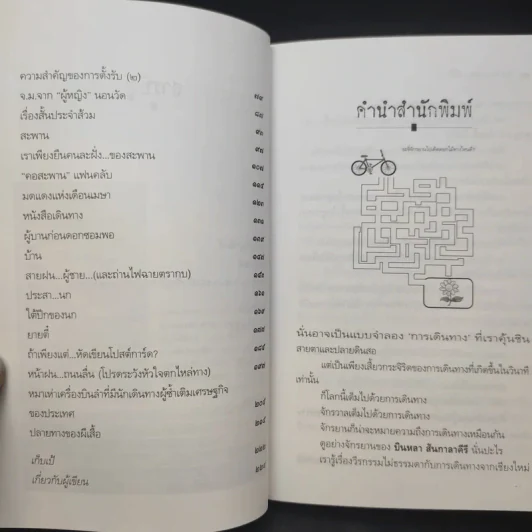 ความสำคัญของการตั้งรับ (๒)
จ.ม.จาก "ผู้หญิง" นอนวัด ๗๙
เรื่องสั้นประจำส้วม
สะพาน ๙๓
เราเพียงยืนคนละฝั่ง...ของสะพาน ๙๗
"คอสะพาน" แฟนคลับ ๑๐๗
มดแดงแห่งเดือนเมษา ๑๑๕
หนังสือเดินทาง ๑๒๓
ผู้บานก่อนดอกซอมพอ ๑๓๑
บ้าน
สายฝน...ผู้ชาย...(และถ่านไฟฉายตรากบ)
ประสา...นก
ใต้ปีกของนก
ยายตี๋
ถ้าเพียงแต่...หัดเขียนโปสต์การ์ด?
หน้าฝน...ถนนลื่น (โปรดระวังหัวใจตกไหล่ทาง)
หมาเห่าเครื่องบินลำที่มีนักเดินทางผู้ซ้ำเติมเศรษฐกิจ
ของประเทศ ๒๐๕
ปลายทางของผีเสื้อ ๒๑๕
เก็บเป้ ๒๒๓
เกี่ยวกับผู้เขียน
คำนำสำนักพิมพ์
นั่นอาจเป็นแบบจำลอง 'การเดินทาง' ที่เราคุ้นชิน
สายตาและปลายดินสอ
แต่เป็นเพียงเสี้ยวกระจิริดของการเดินทางที่เกิดขึ้นในวินาที
เท่านั้น
ก็โลกนี้เต็มไปด้วยการเดินทาง
จักรวาลเต็มไปด้วยการเดินทาง
จักรยานก็น่าจะหมายความถึงการเดินทางเหมือนกัน
ดูอย่างจักรยานของ บินหลา สันกาลาคีรี นั่นปะไร
เรารู้เรื่องวีรกรรมไม่ธรรมดากับการเดินทางจากเชียงใหม่